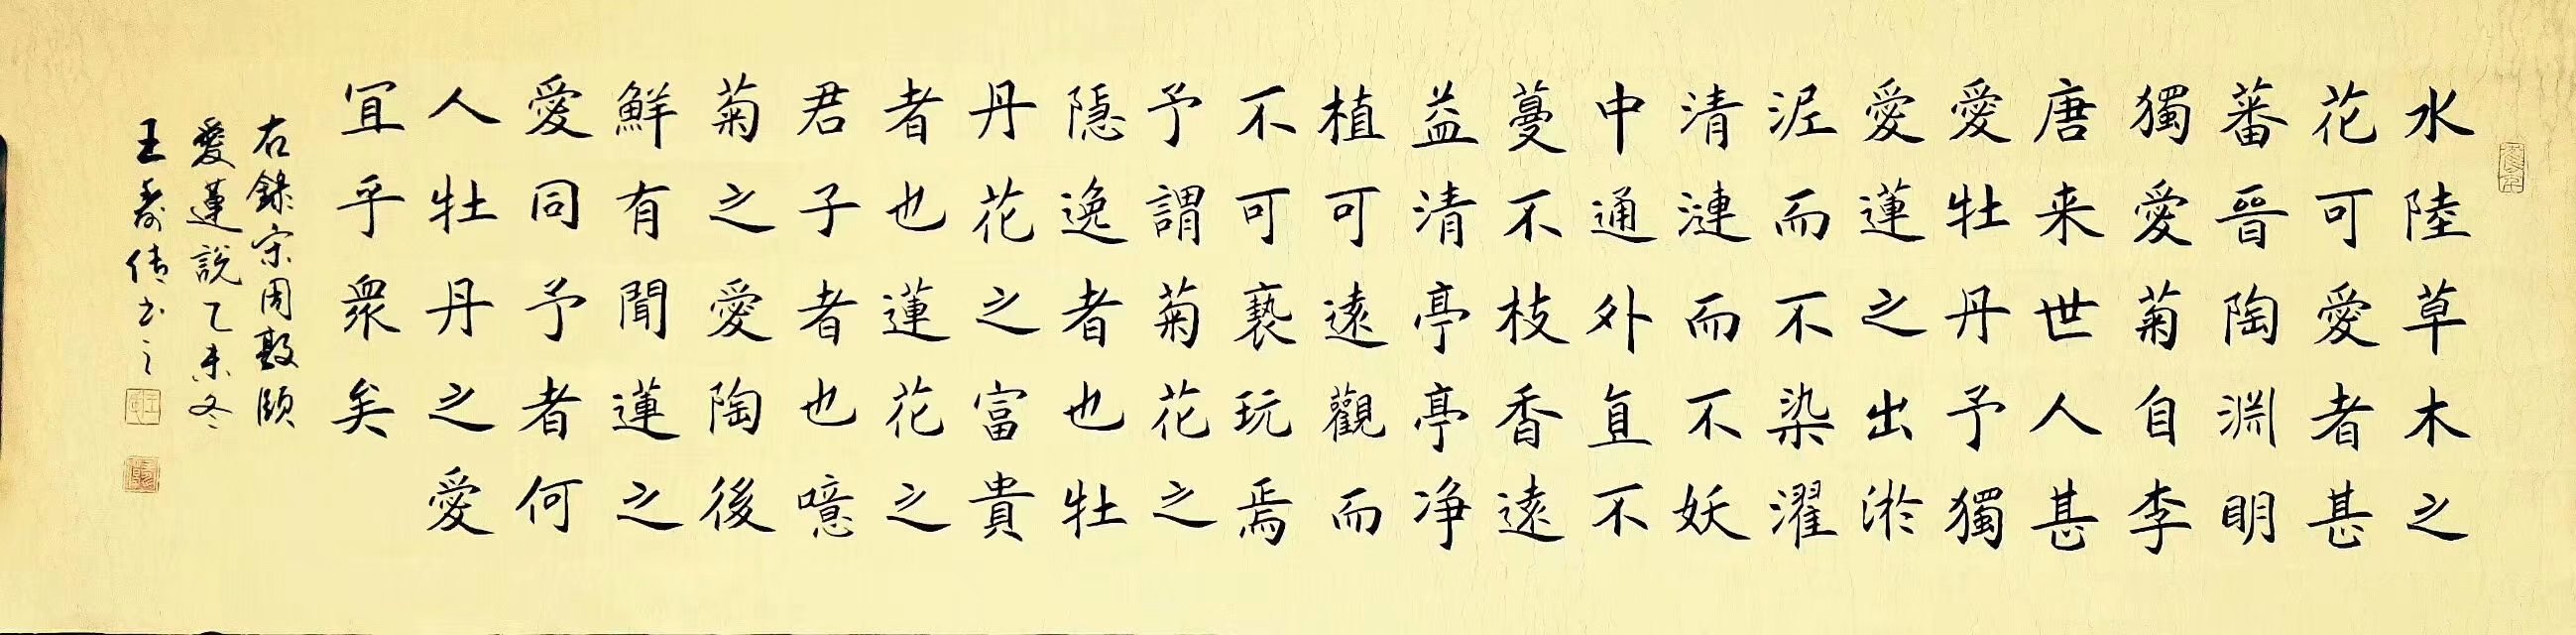 水陸草木之
花可愛者甚
蕃晉陶淵明
獨愛菊自李
唐来世人甚
愛牡丹予獨
愛蓮之出淤
泥而不染濯
清漣而不妖
中通外直不
蔓不枝香遠
益清亭亭净
植可遠觀而
不可褻玩焉
予謂菊花之
隱逸者也牡
丹花之富貴
者也蓮花之
君子者也噫
菊之愛陶後
鮮有聞蓮之
愛同予者何
人牡丹之愛
宜乎衆矣
右錄宋周敦頤
愛蓮說乙未冬
王壽倩书之